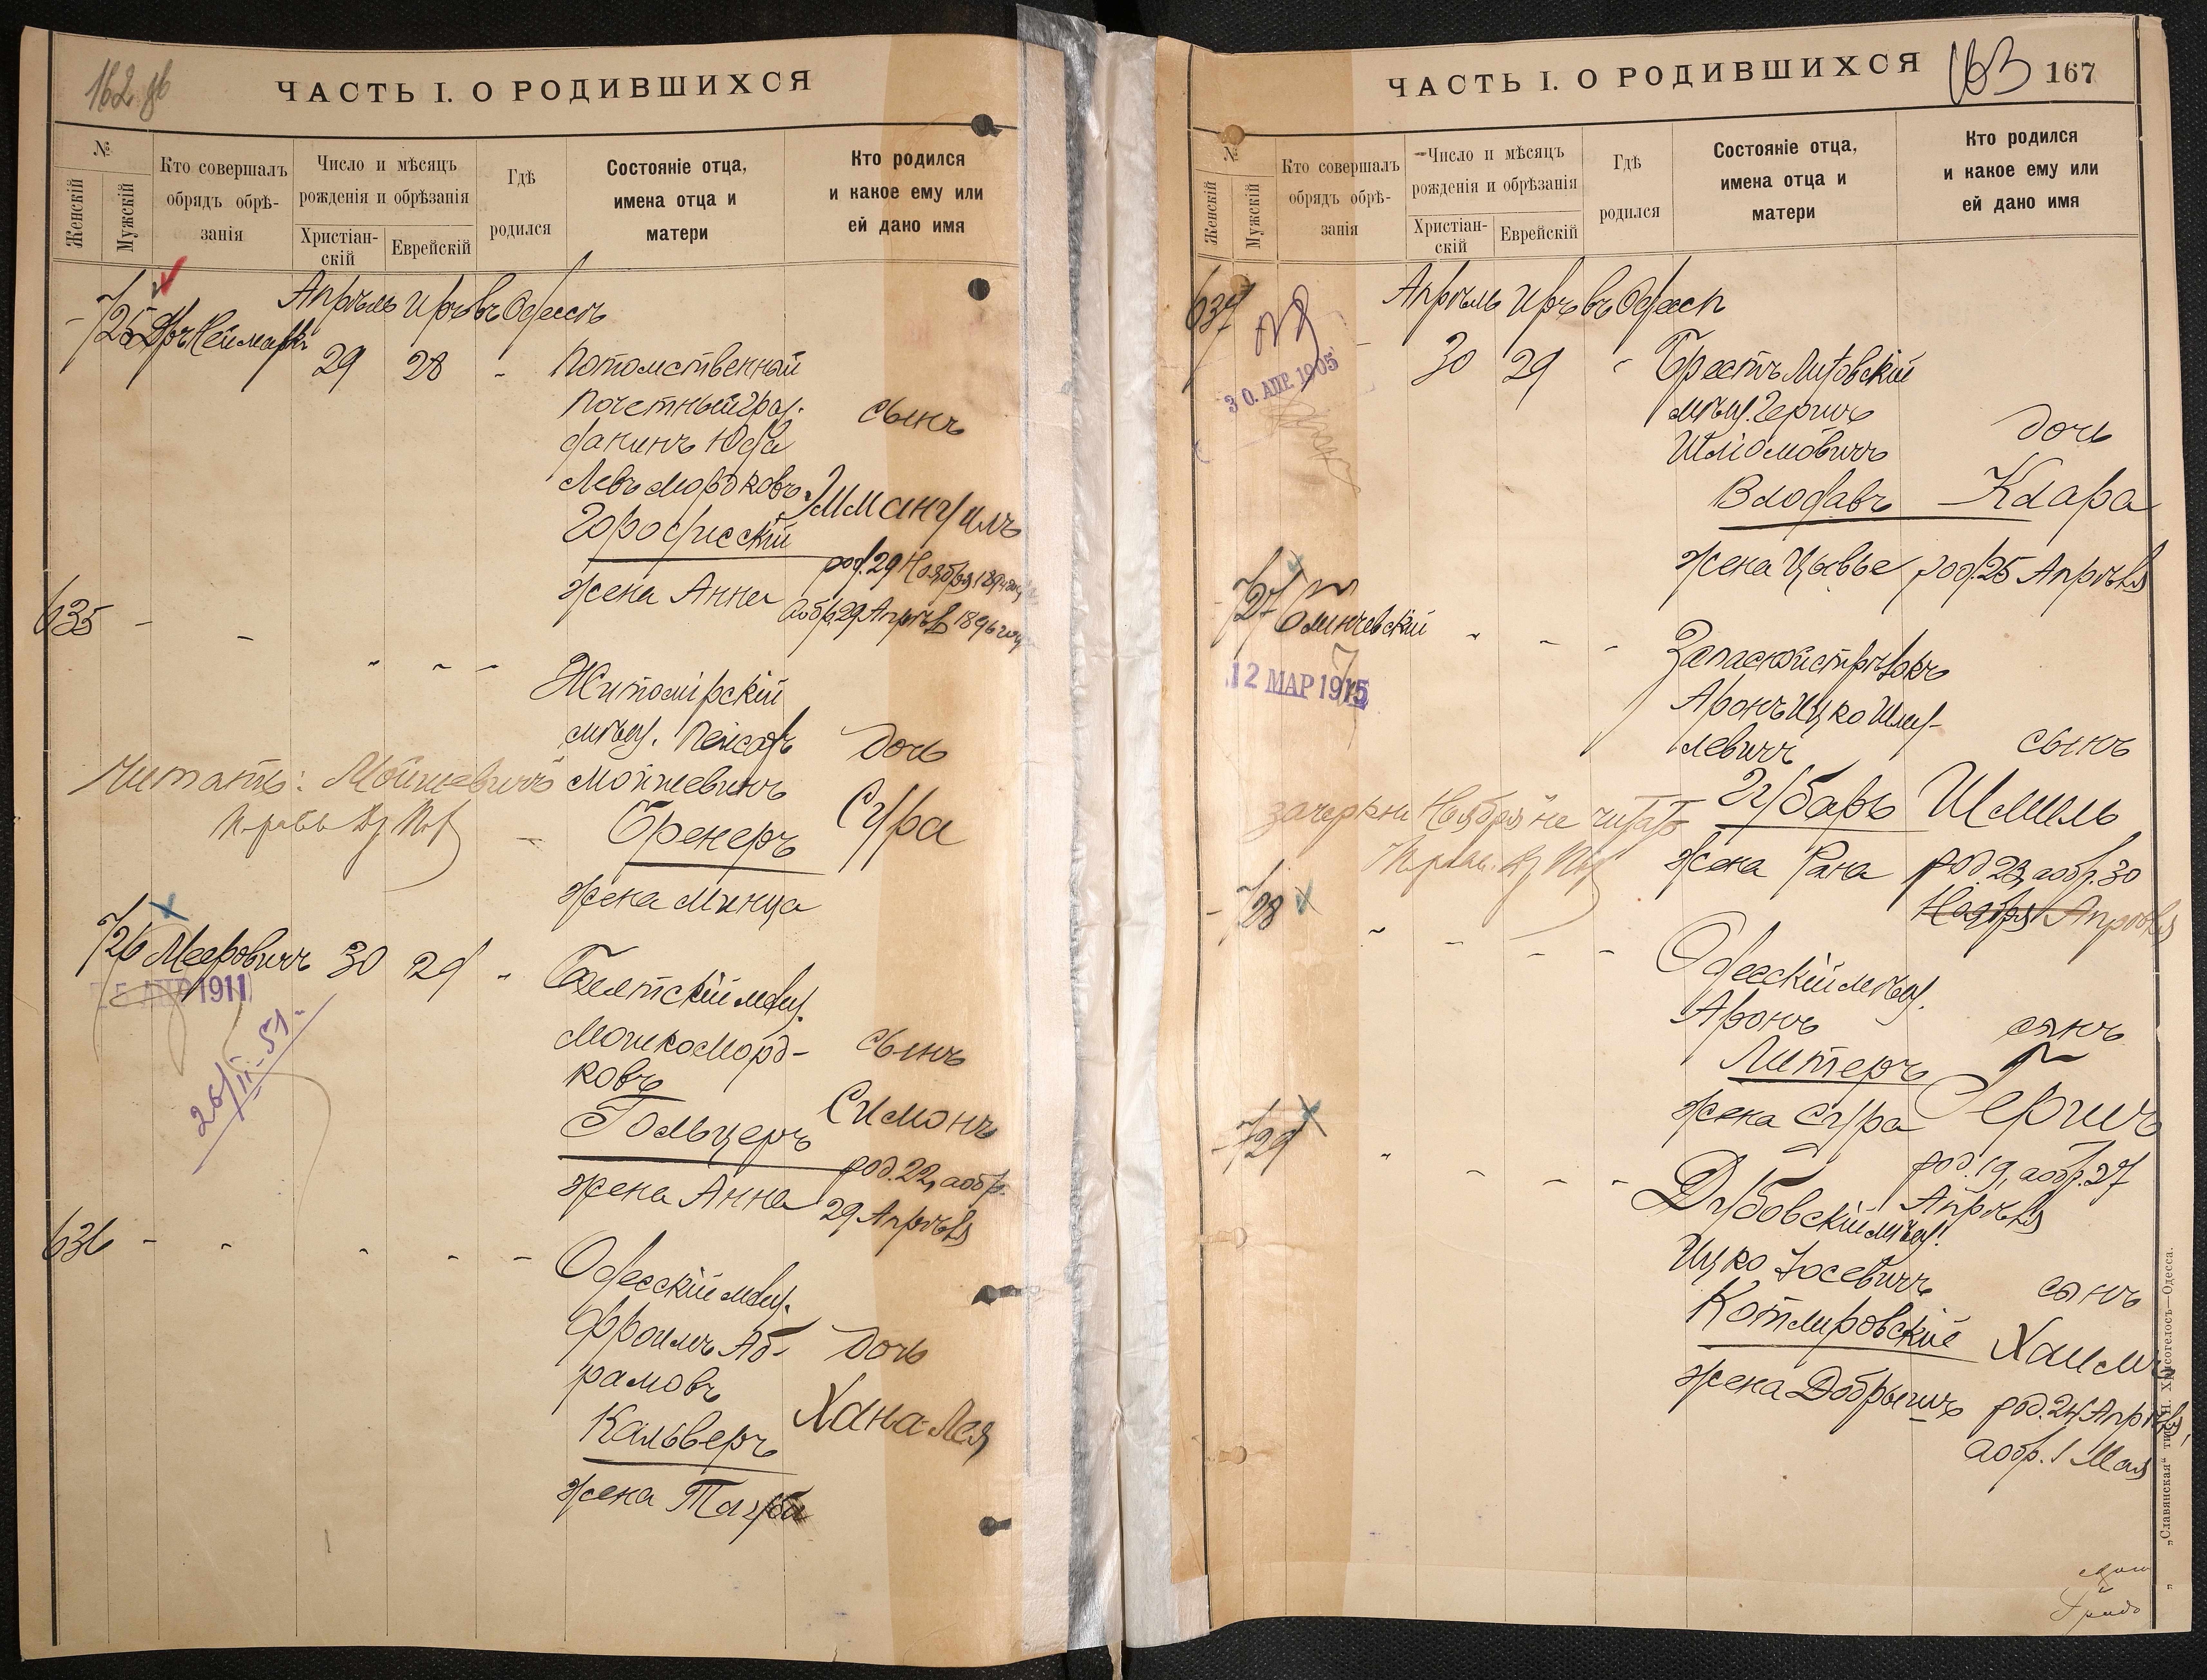 162 об
ЧАСТЬ I. О РОДИВШИХСЯ
№
Женскій
Мужскій
Кто совершалъ обрядъ обрѣ-занія
Число и мѣсяцъ рожденія и обрѣзанія
Христіан-скій
Еврейскій
Гдѣ родился
Состояніе отца, имена отца и матери
Кто родился и какое ему или ей дано имя
725 Д-ръ Неймаркъ
Апрѣль Иръ въ Одессѣ
29 28 -
Потомственный
почетный граж-
данинъ Юда
Левъ Мордковъ
Городисскій
жена Анна
сынъ
Эммануилъ
род. 29 Ноября
а обр. 29 Апрѣля 1896 года
635
Житомірскій
мѣщ. Пейсахъ
Мойшевичъ
Бренеръ
жена Минца
дочь
Сура
Читать: Мойшевичъ
726 Мееровичъ 30 29 -
1911
26/II-51.
Балтскій мѣщ.
Мошко Морд-
ковъ
Гольцеръ
жена Анна
сынъ
Симонъ
род. 22, а обр.
29 Апрѣля
636
Одесскій мѣщ.
Фроимъ Аб-
рамовъ
Кальверъ
жена Тауба
дочь
Хана-Лея
ЧАСТЬ I. О РОДИВШИХСЯ
163 167
№
Женскій
Мужскій
Кто совершалъ обрядъ обрѣ-занія
Число и мѣсяцъ рожденія и обрѣзанія
Христіан-скій
Еврейскій
Гдѣ родился
Состояніе отца, имена отца и матери
Кто родился и какое ему или ей дано имя
637
Апрѣль Иръ въ Одессѣ
30 29 -
30. АПР. 1905
Брестъ Литовскій
мѣщ. Гершъ
Шліомовичъ
Влодавъ
жена Цывье
дочь
Клара
род. 25 Апрѣля
727
12 МАР 1915
Запасной стрѣлокъ
Аронъ Ицко Шму-
левичъ
Губарь
жена Рана
сынъ
Шмиль
род 23, а обр. 30
Ноября Апрѣля
зачеркн Ноября не читать
728
Одесскій мѣщ.
Аронъ
Литеръ
жена Сура
сынъ
Гершъ
род. 19, а обр. 27
Апрѣля
729
Дубовскій мѣщ.
Ицко Іосевичъ
Котляровскій
жена Добрышъ
сынъ
Хаимъ
род. 24 Апрѣля,
а обр. 1 Мая
„Славянская“ тип. Н. Хрисогелосъ—Одесса.